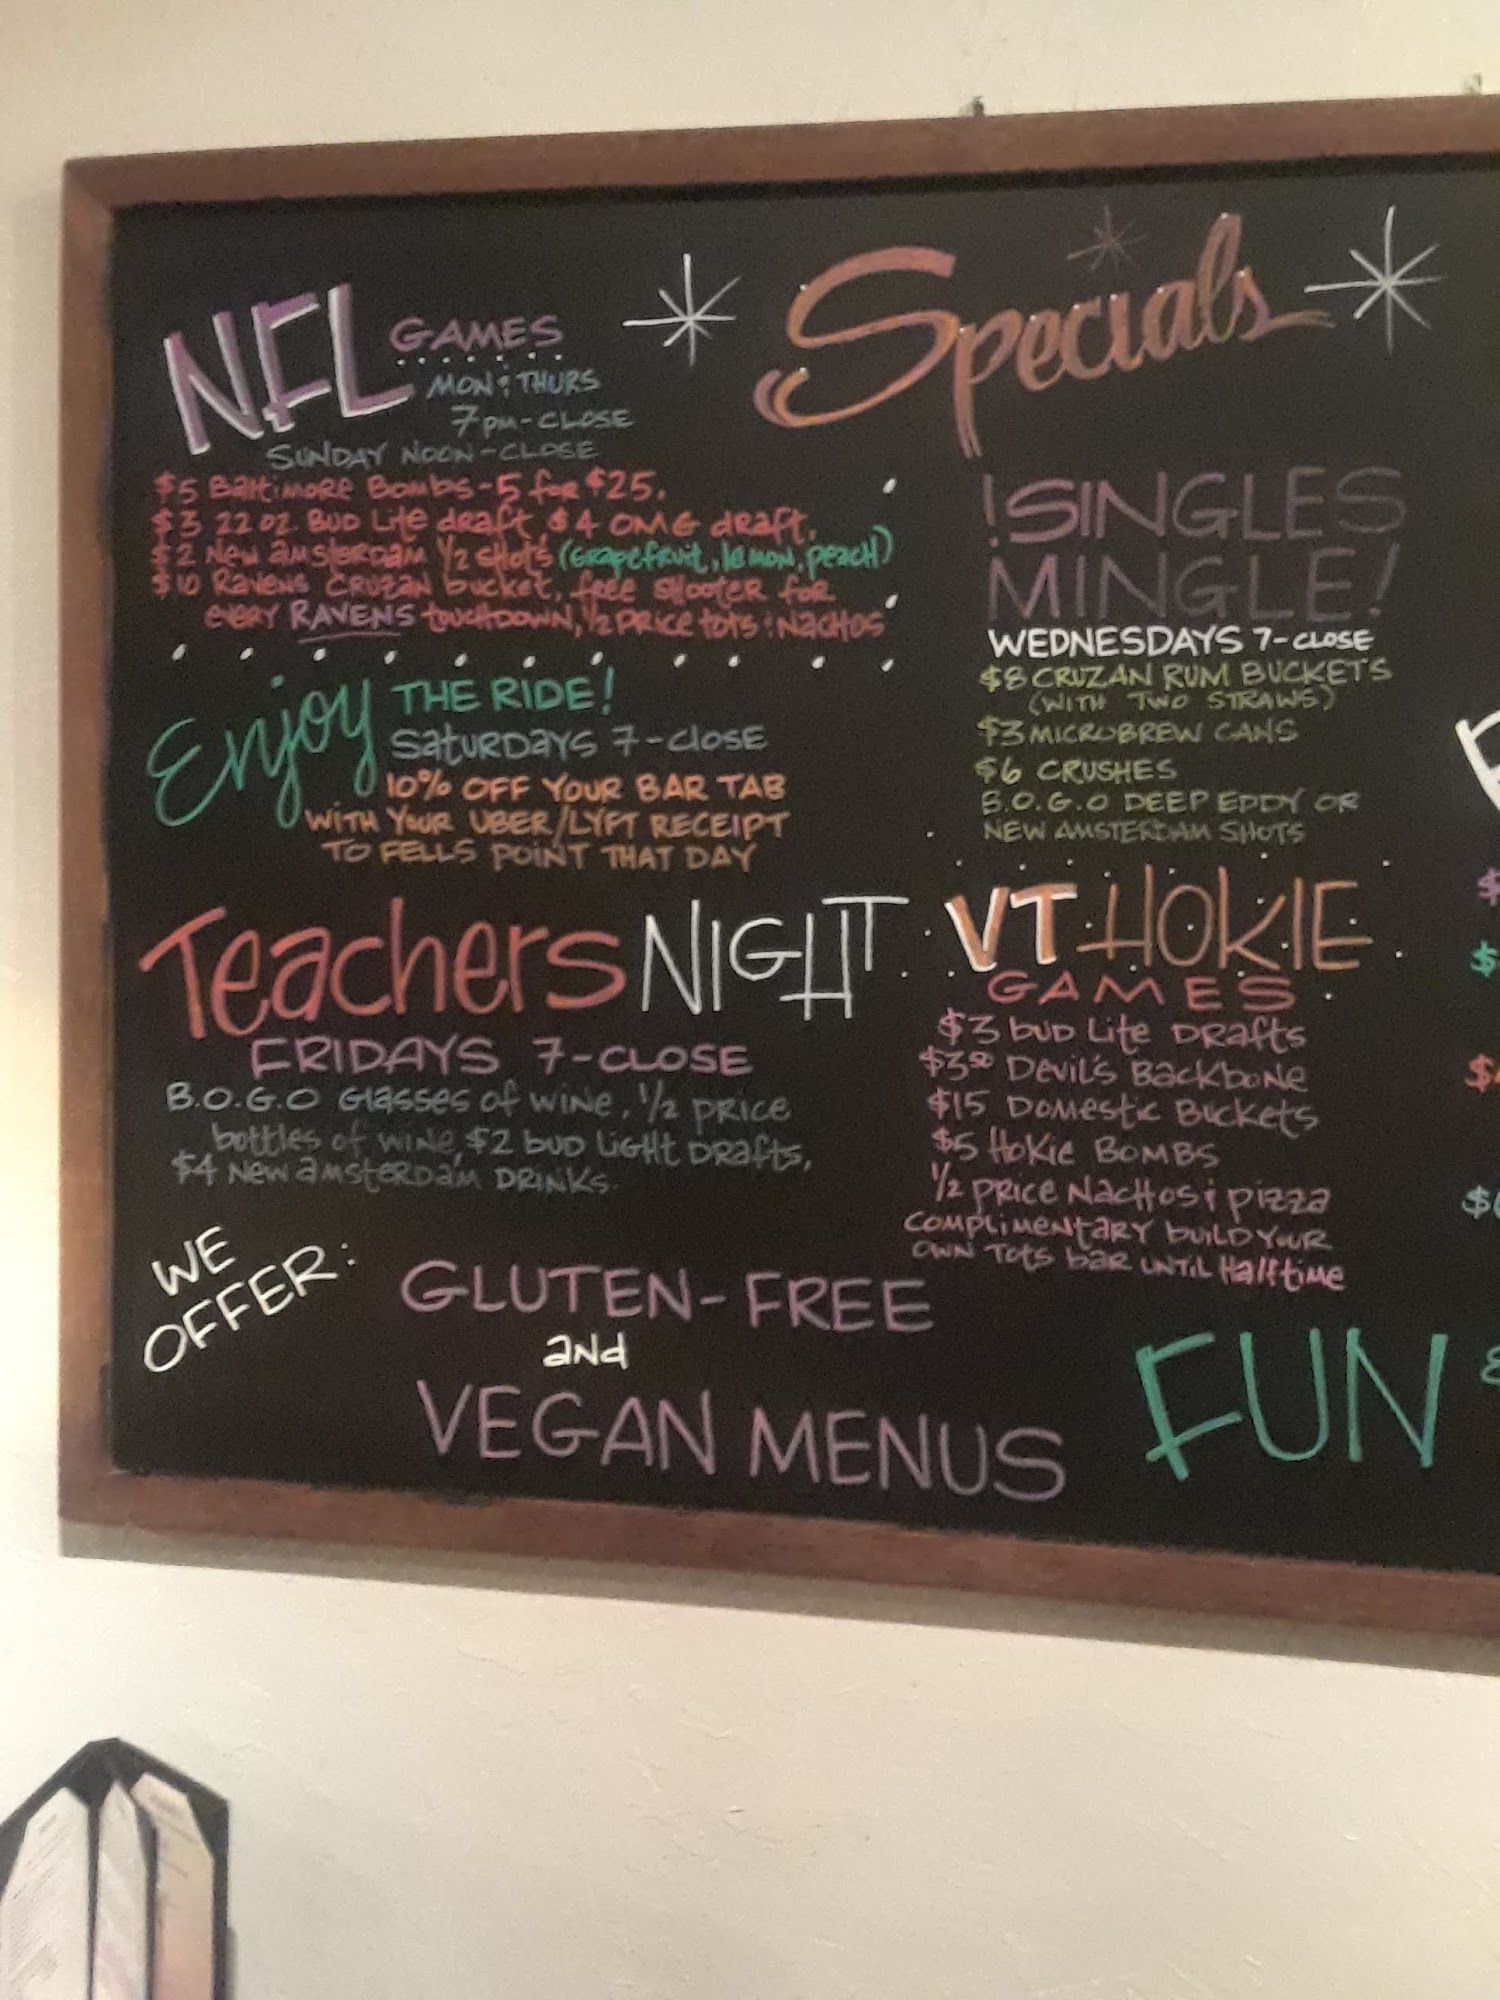 Specials
NFL GAMES
MON & THURS
7pm-CLOSE
SUNDAY NOON-CLOSE
$5 Baltimore Bombs - 5 for $25.
$3 22 oz. Bud Lite draft $4 OMG draft,
$2 New amsterdam 1/2 shots (Grapefruit, lemon, peach)
$10 Ravens Cruzan bucket, free shooter for
every RAVENS touchdown, 1/2 price tots & Nachos
Enjoy THE RIDE!
SATURDAYS 7-close
10% OFF YOUR BAR TAB
WITH YOUR UBER/LYFT RECEIPT
TO FELLS POINT THAT DAY
Teachers NIGHT
FRIDAYS 7-CLOSE
B.O.G.O Glasses of wine, 1/2 price
bottles of wine, $2 bud light drafts,
$4 New amsterdam drinks.
!SINGLES
MINGLE!
WEDNESDAYS 7-CLOSE
$8 CRUZAN RUM BUCKETS
(WITH TWO STRAWS)
$3 MICROBREW CANS
$6 CRUSHES
B.O.G.O DEEP EDDY OR
NEW AMSTERDAM SHOTS
VT HOKIE
GAMES
$3 bud Lite Drafts
$3.50 Devil's Backbone
$15 Domestic Buckets
$5 Hokie BOMBS
1/2 price Nachos & pizza
complimentary build your
own Tots bar until Halftime
WE
OFFER:
GLUTEN-FREE
and
VEGAN MENUS
FUN &